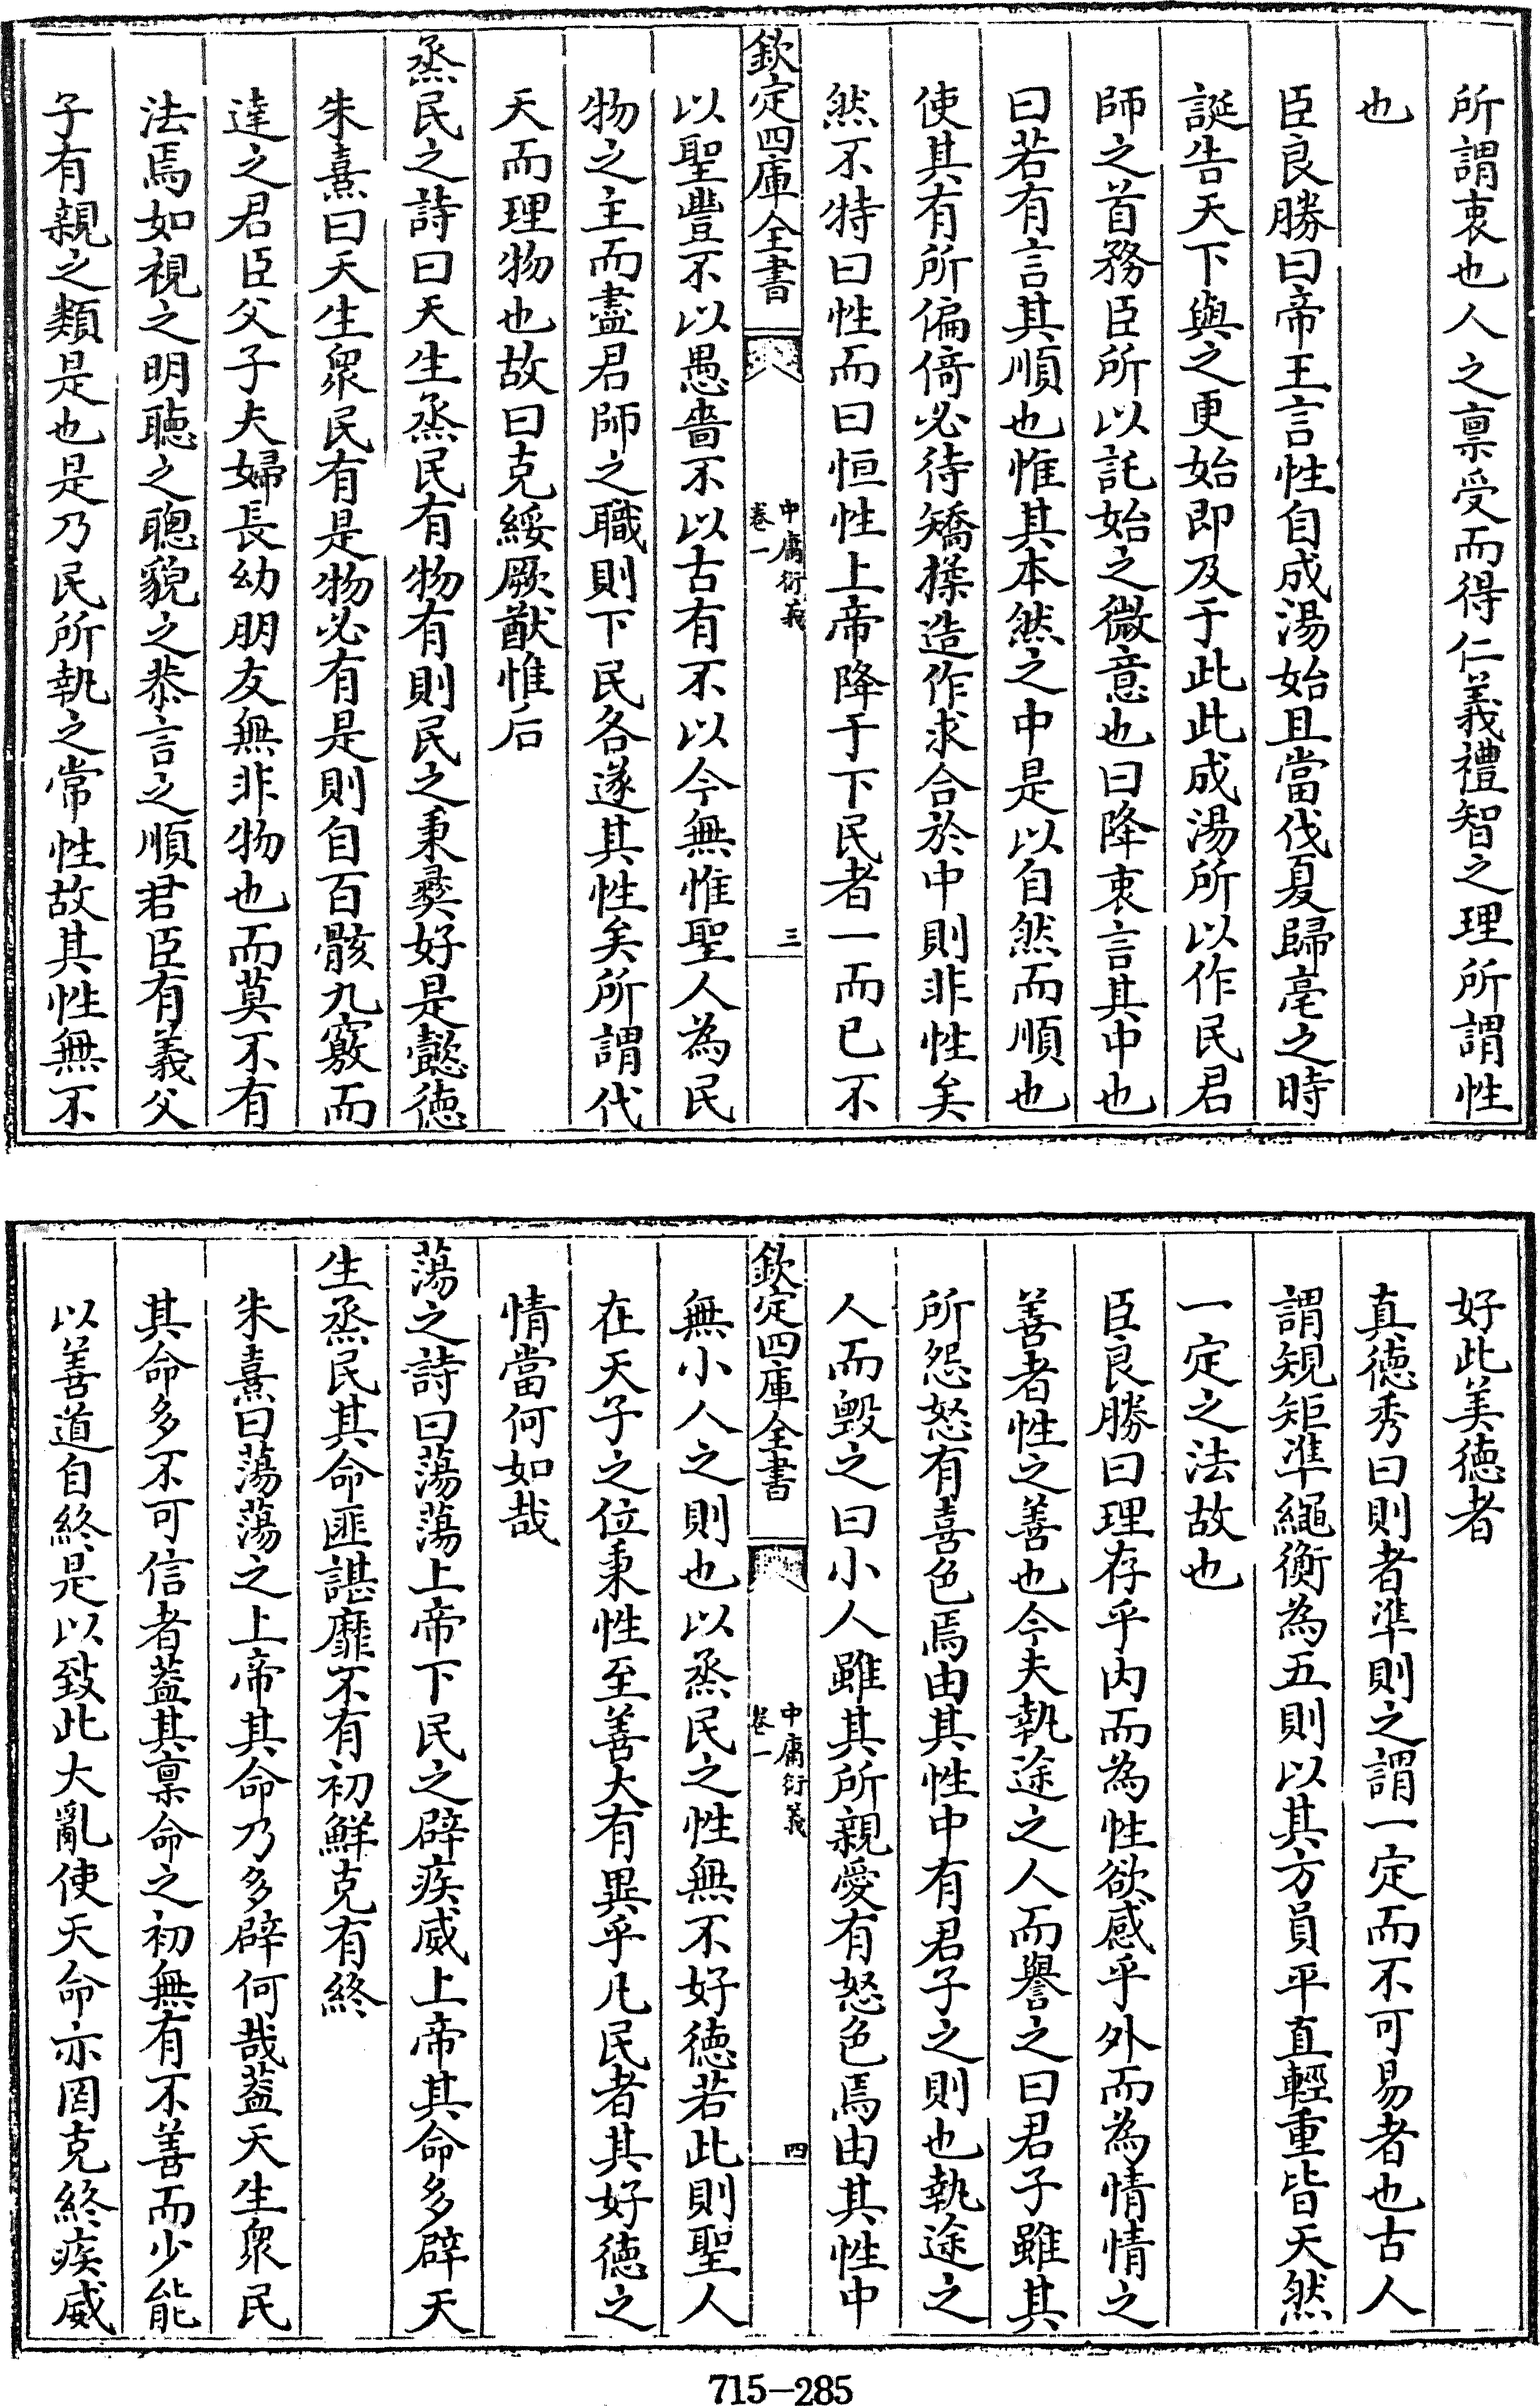 所謂衷也人之稟受而得仁義禮智之理所謂性
也
臣良勝曰帝王言性自成湯始且當伐夏歸亳之時
誕告天下與之更始即及于此此成湯所以作民君
師之首務臣所以託始之微意也曰降衷言其中也
曰若有言其順也惟其本然之中是以自然而順也
使其有所偏倚必待矯揉造作求合於中則非性矣
然不特曰性而曰恒性上帝降于下民者一而已不
欽定四庫全書
中庸衍義
卷一
三
以聖豐不以愚嗇不以古有不以今無惟聖人為民
物之主而盡君師之職則下民各遂其性矣所謂代
天而理物也故曰克綏厥猷惟后
烝民之詩曰天生烝民有物有則民之秉彝好是懿德
朱熹曰天生衆民有是物必有是則自百骸九竅而
達之君臣父子夫婦長幼朋友無非物也而莫不有
法焉如視之明聽之聰貌之恭言之順君臣有義父
子有親之類是也是乃民所執之常性故其性無不
好此美德者
真德秀曰則者準則之謂一定而不可易者也古人
謂規矩準繩衡為五則以其方員平直輕重皆天然
一定之法故也
臣良勝曰理存乎内而為性欲感乎外而為情情之
善者性之善也今夫執途之人而譽之曰君子雖其
所怨怒有喜色焉由其性中有君子之則也執途之
人而毀之曰小人雖其所親愛有怒色焉由其性中
欽定四庫全書
中庸衍義
卷一
四
無小人之則也以烝民之性無不好德若此則聖人
在天子之位秉性至善大有異乎凡民者其好德之
情當何如哉
蕩之詩曰蕩蕩上帝下民之辟疾威上帝其命多辟天
生烝民其命匪諶靡不有初鮮克有終
朱熹曰蕩蕩之上帝其命乃多辟何哉蓋天生衆民
其命多不可信者蓋其稟命之初無有不善而少能
以善道自終是以致此大亂使天命亦罔克終疾威
715-285